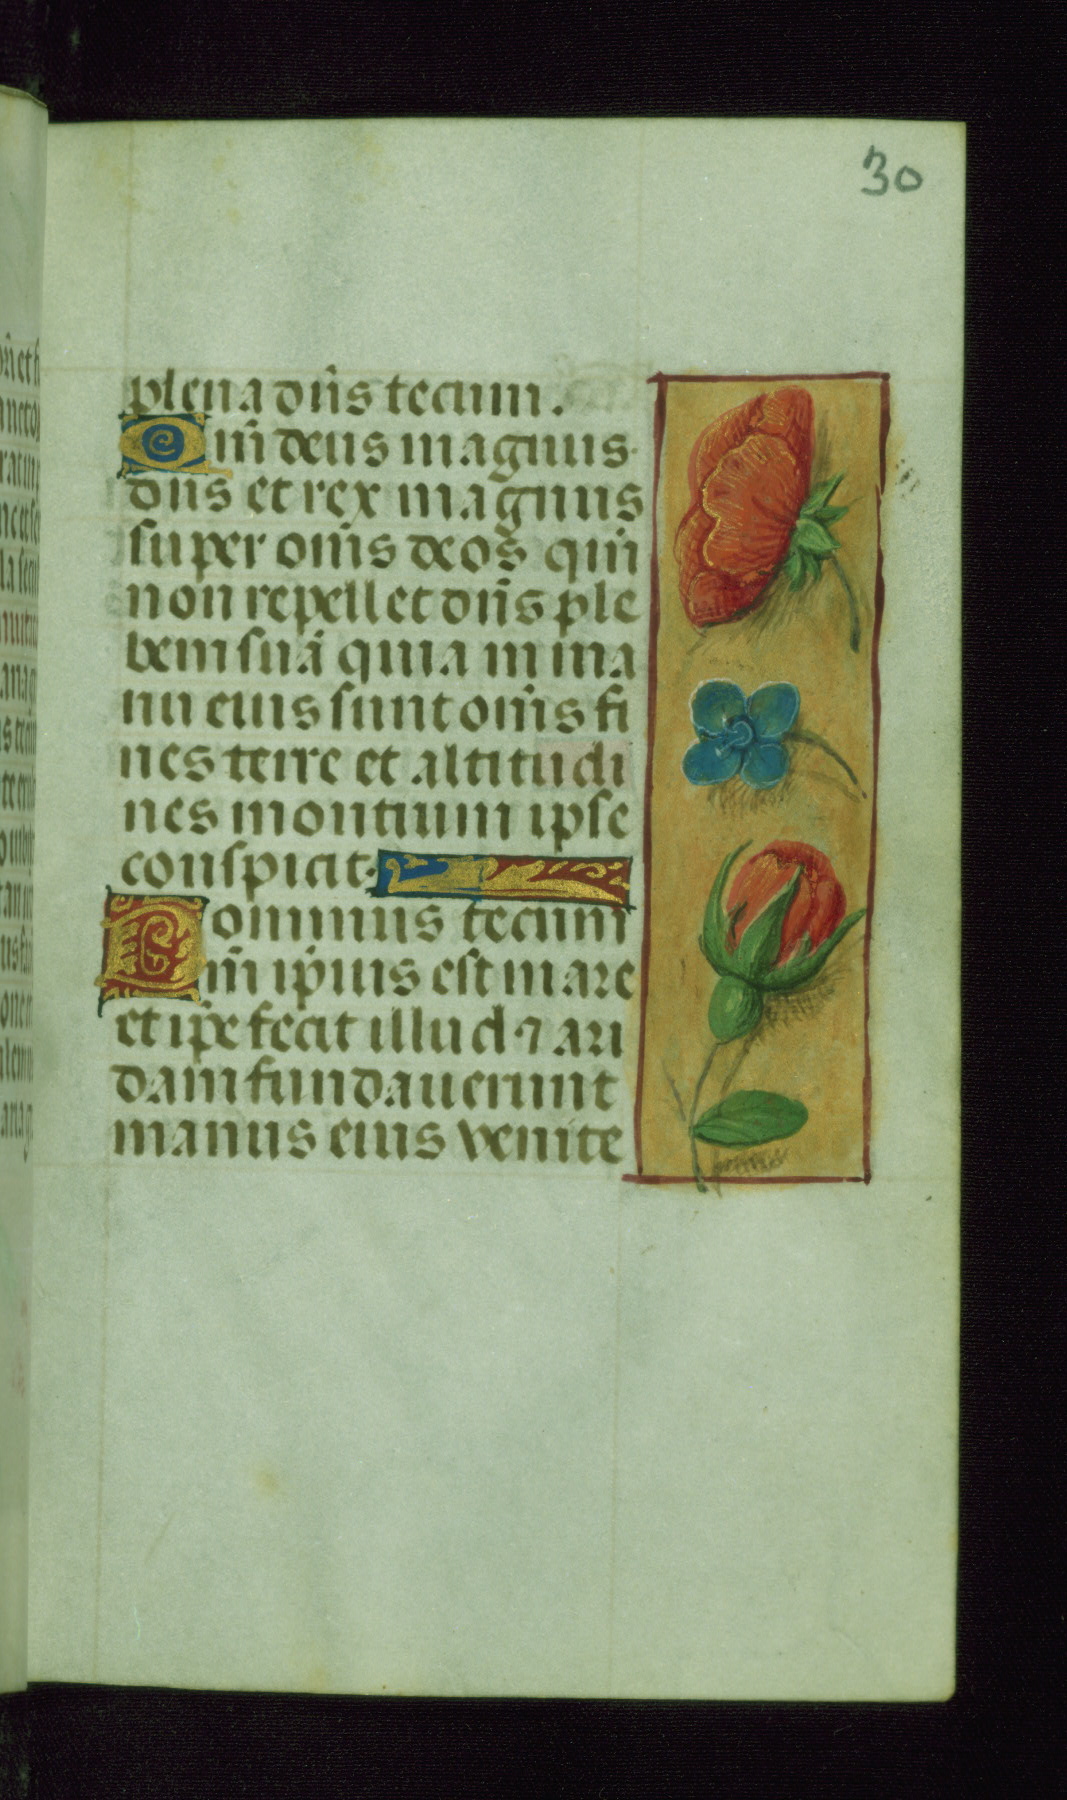 30
plena dñs tecum.
Qm̄ deus magnus
dñs et rex magnus
super om̄s deos qm̄
non repellet dñs ple
bem suā quia in ma
nu eius sunt om̄s fi
nes terre et altitudi
nes montium ipse
conspicit.
Dominus tecum
Qm̄ ip̄ius est mare
et ip̄e fecit illud ⁊ ari
dam fundauerunt
manus eius venite